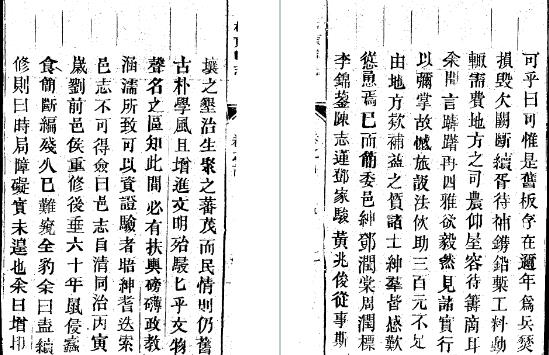 壤之墾治生聚之蕃茂而民情則仍舊
古朴學風且增進文明殆駸匕乎文物
聲名之區知此間必有扶輿磅礴政教
涵濡所致可以資證驗者晤紳耆迭索
邑志不可得僉曰邑志自清同治丙寅
歲劉前邑侯重修後垂六十年鼠侵蠹
食簡斷編殘久已難窺全豹余曰盍續
修則曰時局障礙實未遑也余曰增印
可乎曰可惟是舊板存在邇年為兵燹
損毀欠闕斷續胥待補鐫鉛槧工料動
輒需費地方之司農仰屋容待籌商耳
余聞言躊躇再四雅欲毅然見諸實行
以彌掌故憾旋設法佽助三百元不足
由地方欵補益之價諸士紳羣皆感歎
慫恿焉已而委邑紳鄧潤棠周潤標
李錦蓥陳志鄧家駿黃兆俊從事斯